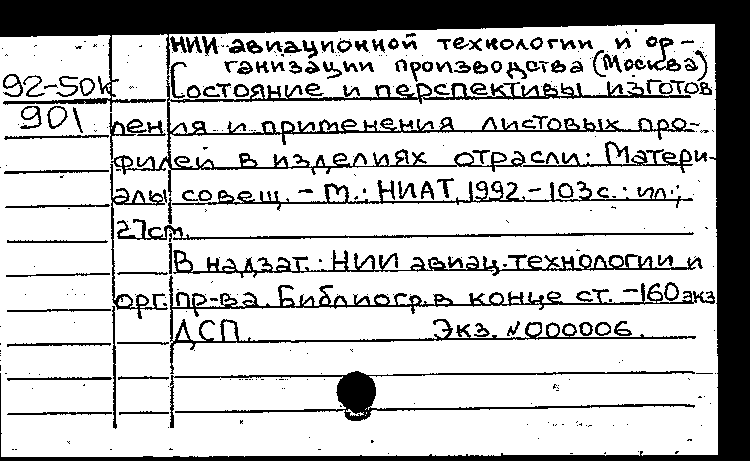 НИИ авиационной технологии и ор-
ганизации производства (Москва)
92-50к
901
Состояние и перспективы изготов
ления и применения листовых про-
филей в изделиях отрасли: Матери-
алы совещ. - М.: НИАТ, 1992. - 103 с.: ил.;
27 cm.
В надзаг.: НИИ авиац. технологии и
орг. пр-ва. Библиогр. в конце ст. - 160 экз
ДСП. Экз. №000006.